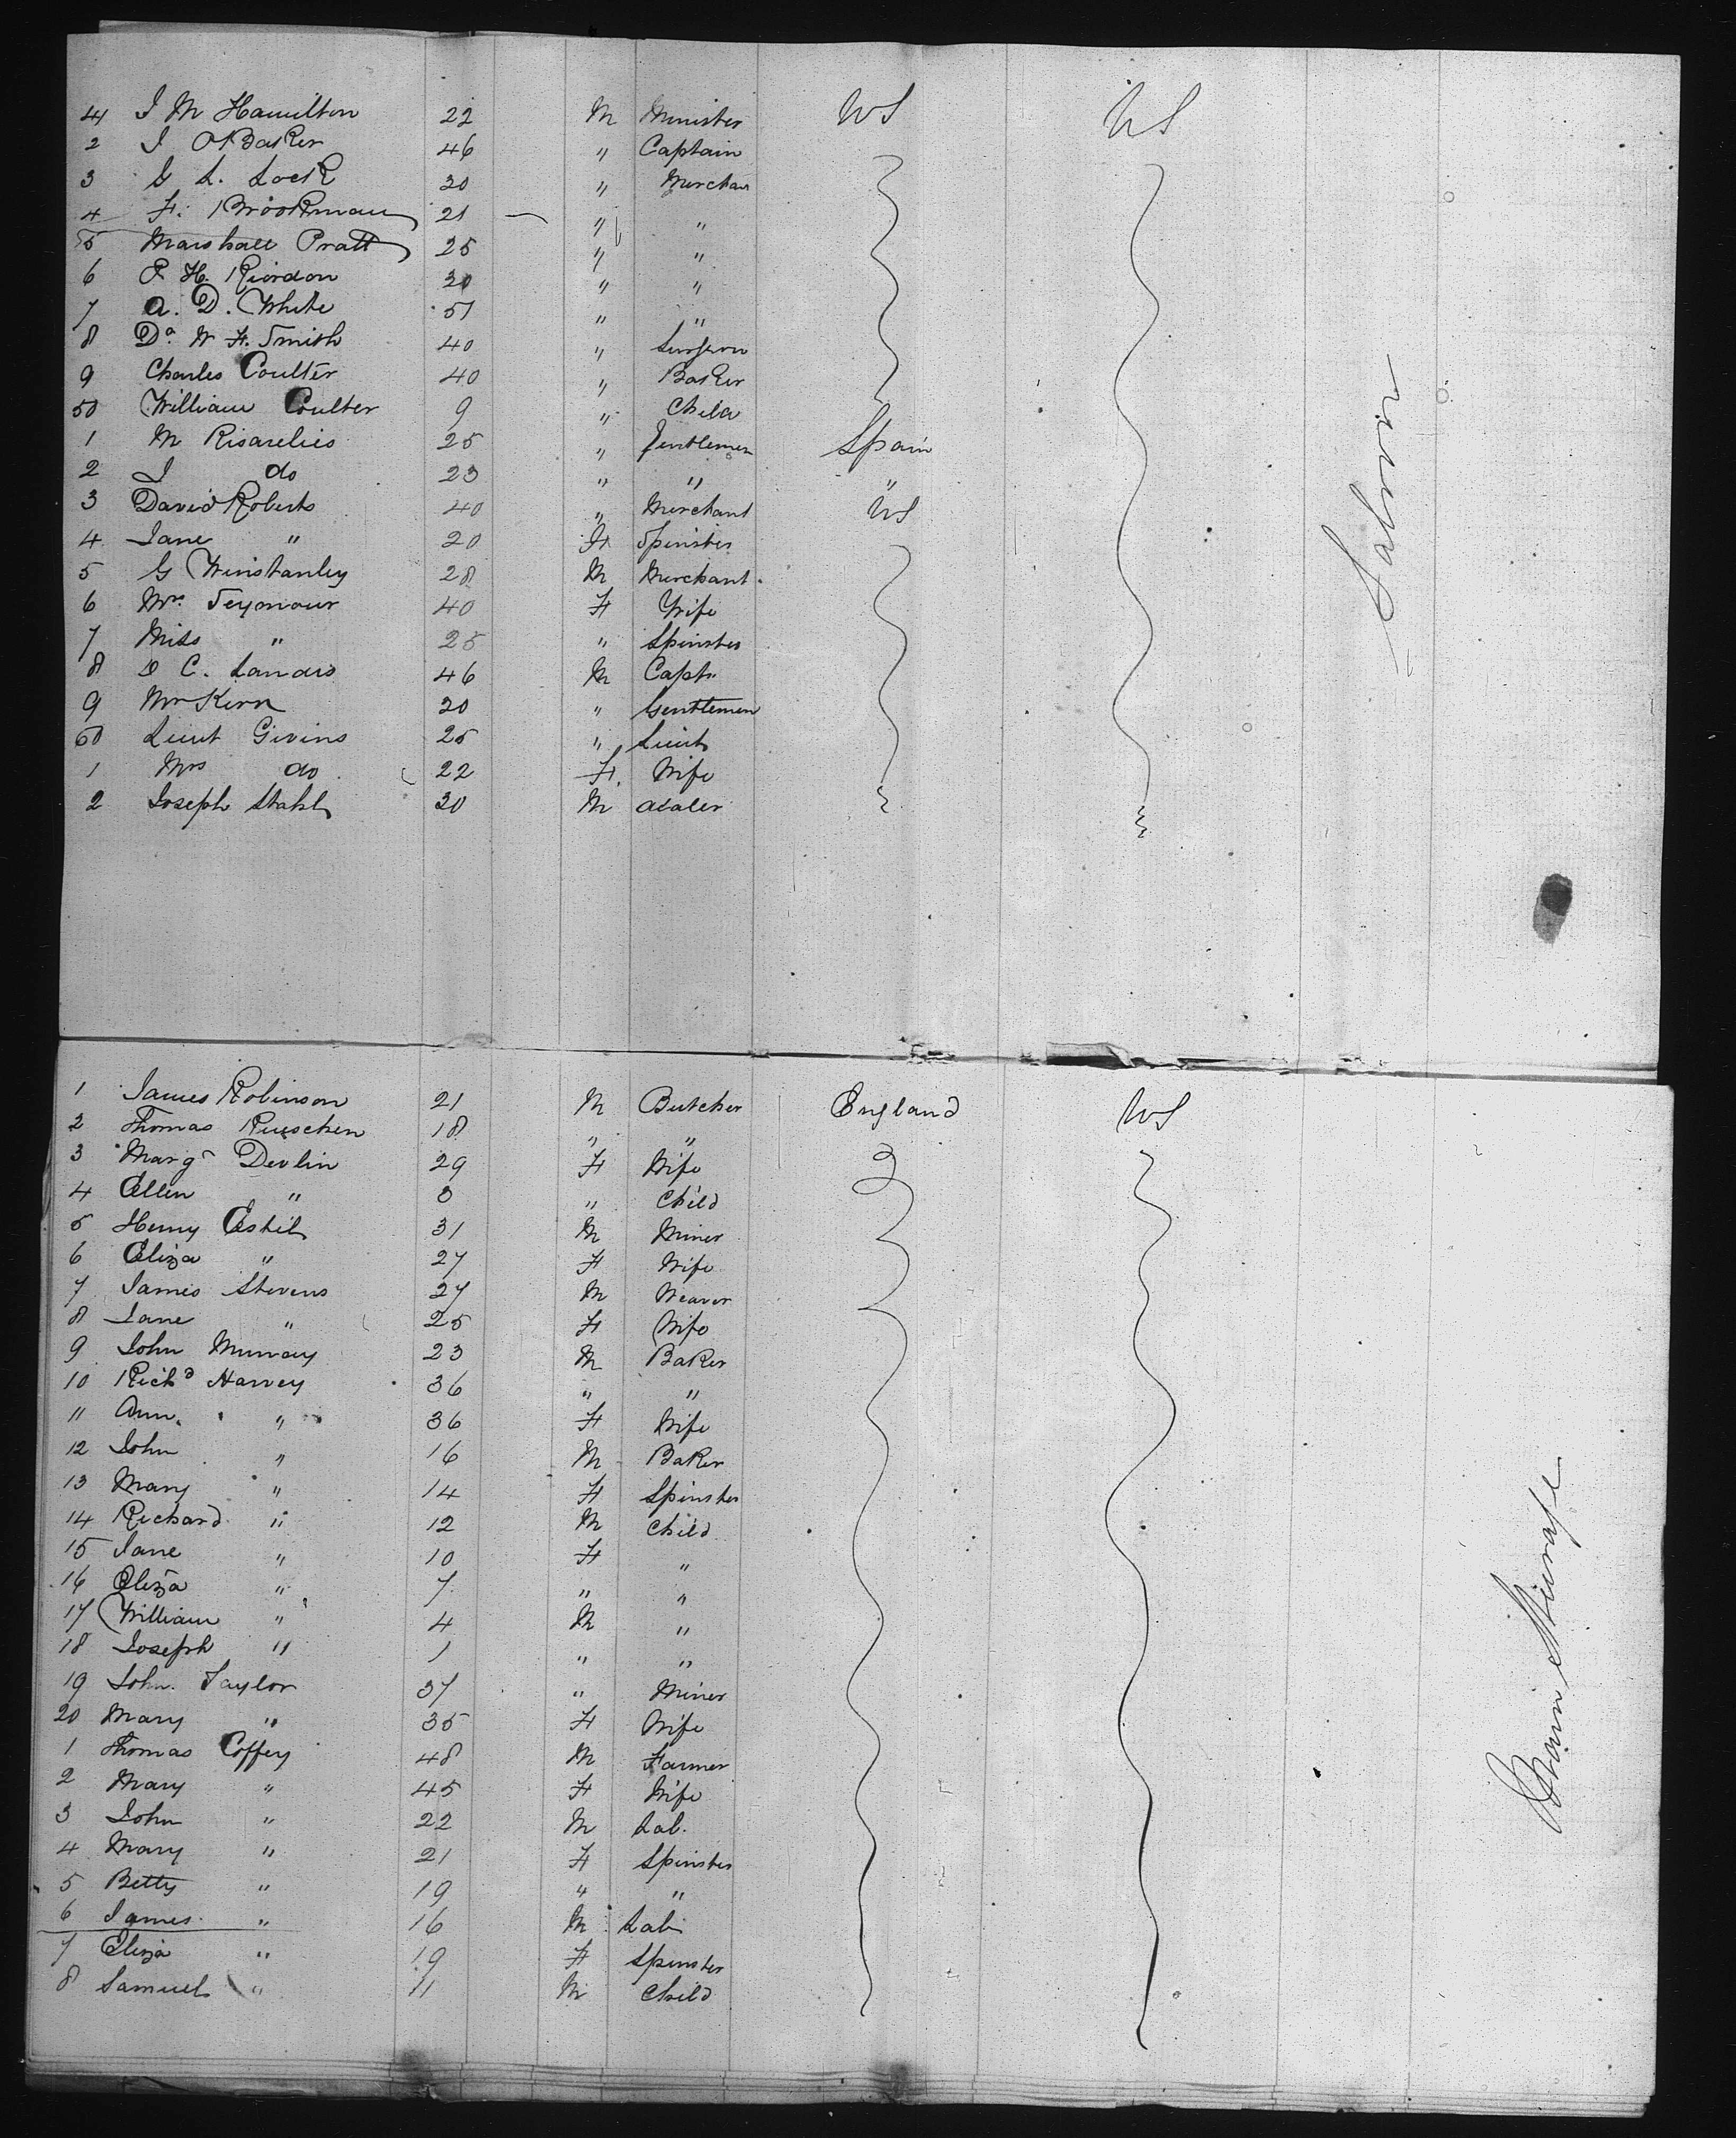 41 J M Hamilton 22 M Minister US US
2 J O Baker 46 " Captain
3 G L. Lock 30 " Merchan
4 F. Brookman 21 — " "
5 Marshall Pratt 25 " "
6 P. H. Riordon 30 " "
7 A. D. White 51 " "
8 Dr W H. Smith 40 " Surgeon
9 Charles Coulter 40 " Baker
50 William Coulter 9 " Child
1 M Risarelies 25 " Gentlemen Spain
2 J do 23 " " "
3 David Roberts 40 " Merchant US
4 Jane " 20 F Spinster
5 G Winstanley 28 M Merchant
6 Mrs Seymour 40 F Wife
7 Miss " 25 " Spinster
8 D C. Landis 46 M Capt.
9 Mr Kern 20 " Gentlemen
60 Lieut Givins 25 " Lieut
1 Mrs do 22 F. Wife
2 Joseph Stahl 30 M dealer
Saloon
1 James Robinson 21 M Butcher England US
2 Thomas 18 " "
3 Margt Devlin 29 F Wife
4 Ellen " 3 " Child
5 Henry 31 M Miner
6 Eliza " 27 F Wife
7 James Stevens 27 M Weaver
8 Jane " 25 F Wife
9 John Murray 23 M Baker
10 Richd Harvey 36 " "
11 Ann " 36 F Wife
12 John " 16 M Baker
13 Mary " 14 F Spinster
14 Richard " 12 M Child
15 Jane " 10 F "
16 Eliza " 7 " "
17 William " 4 M "
18 Joseph " 1 " "
19 John Taylor 37 " Miner
20 Mary " 35 F Wife
1 Thomas Coffey 48 M Farmer
2 Mary " 45 F Wife
3 John " 22 M Lab.
4 Mary " 21 F Spinster
5 Betty " 19 " "
6 James " 16 M Lab
7 Eliza " 19 F Spinster
8 Samuel " 11 M Child
Main Steerage